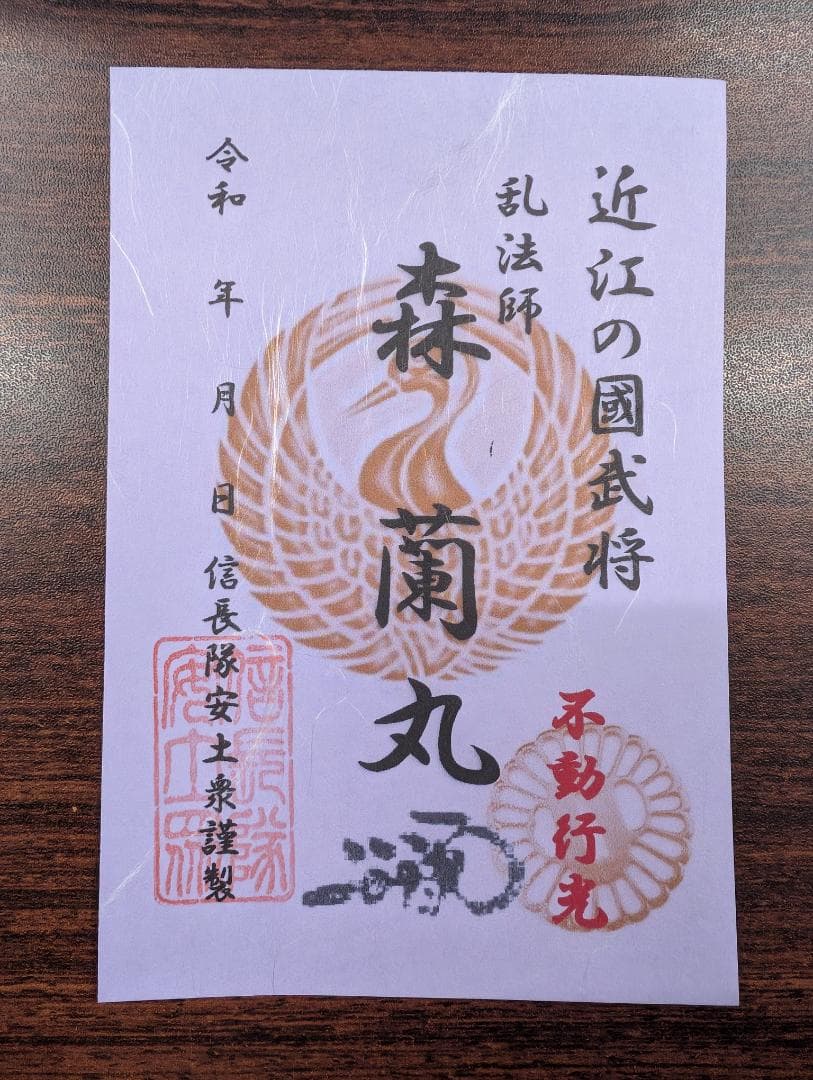 近江の國武将
乱法師
森蘭丸
不動行光
令和 年 月 日 信長隊安土衆謹製
信長隊
安土衆